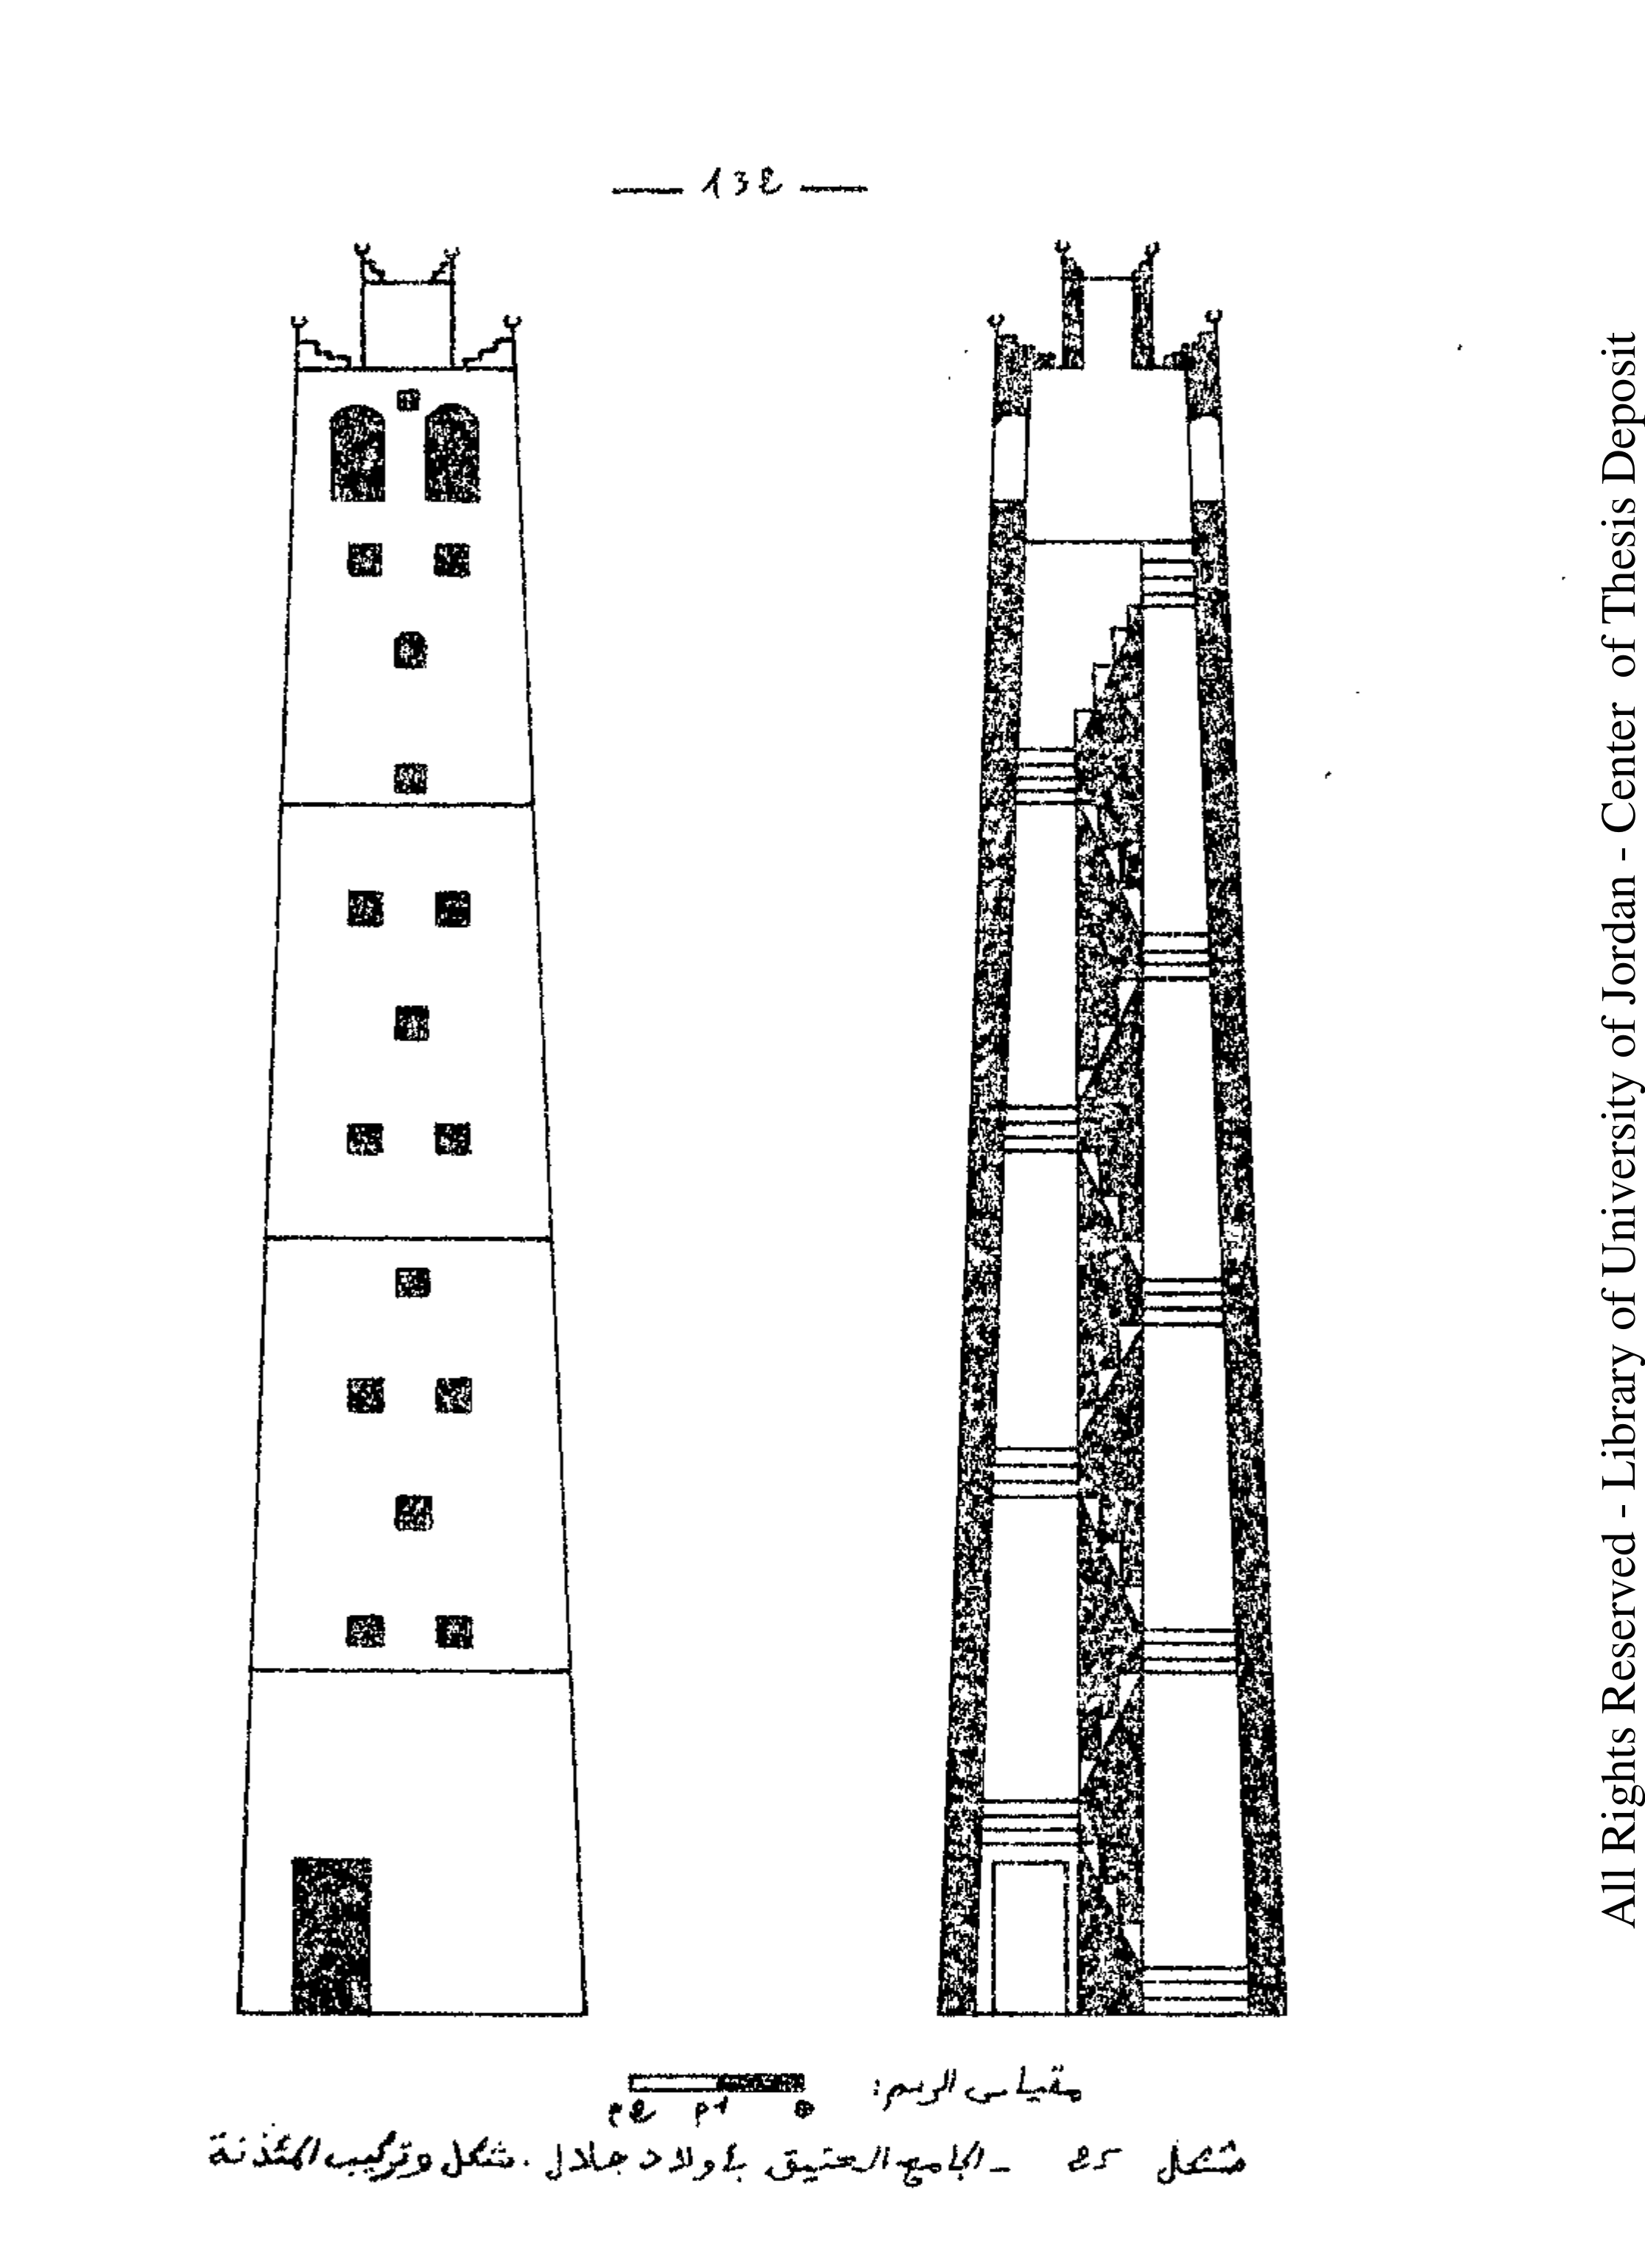 — 132 —
مقياس الرسم:
0 1م 2م
شكل 25 - الجامع العتيق بأولاد جلال . شكل وتركيب المئذنة
All Rights Reserved - Library of University of Jordan - Center of Thesis Deposit